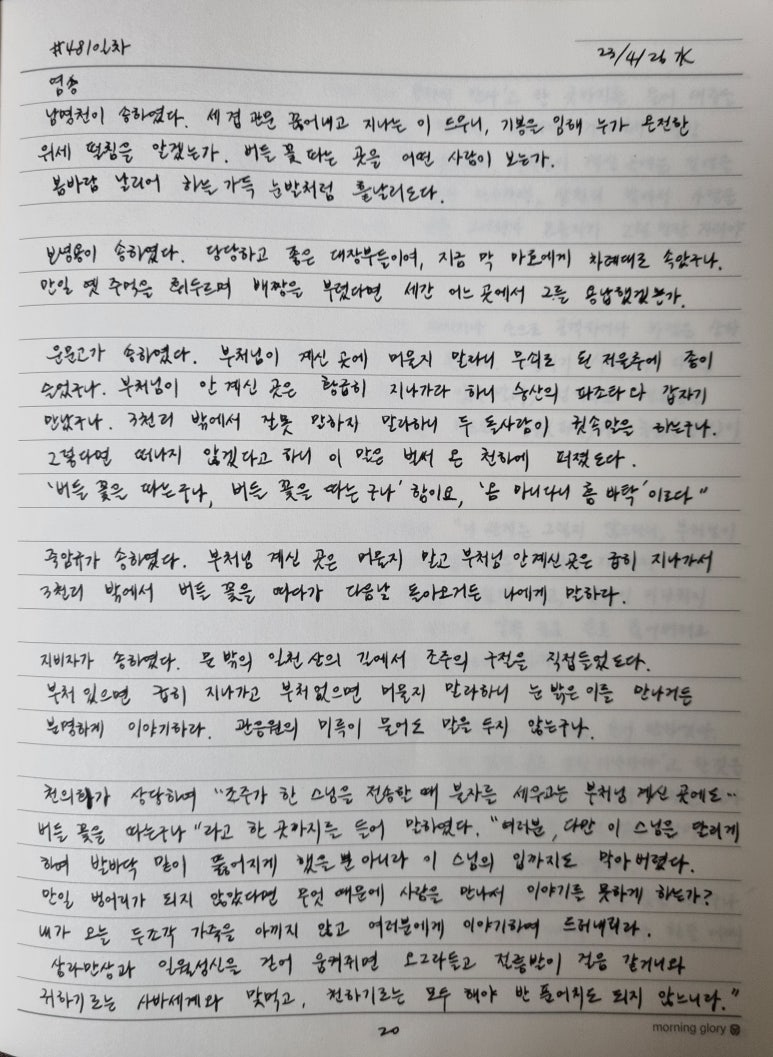 #481일차
23/4/26 水
염송
남명천이 송하였다. 세 겹 관문 뚫어내고 지나는 이 드무니, 기봉을 임해 누가 온전한
위세 떨침을 알겠는가. 버들 꽃 따는 곳을 어떤 사람이 보는가.
봄바람 날리어 하늘 가득 눈발처럼 흩날리도다.
보녕용이 송하였다. 당당하고 좋은 대장부들이여, 지금 막 아로에게 차례대로 속았구나.
만일 옛 주먹을 휘두르며 배짱을 부렸다면 세간 어느 곳에서 그를 용납했겠는가.
운문고가 송하였다. 부처님이 계신 곳에 머물지 말라니 무쇠로 된 저울추에 좀이
슬었구나. 부처님이 안 계신 곳은 황급히 지나가라 하니 숭산의 파조타다 갑자기
만났구나. 3천리 밖에서 잘못 말하지 말라하니 두 돌사람이 귓속말을 하는구나.
그렇다면 떠나지 않겠다고 하니 이 말은 벌써 온 천하에 퍼졌도다.
'버들 꽃을 따는구나, 버들 꽃을 따는구나' 함이요, '옴 아니다니 흠 바탁'이로다"
죽암규가 송하였다. 부처님 계신 곳은 머물지 말고 부처님 안계신 곳은 급히 지나가서
3천리 밖에서 버들 꽃을 따다가 다음날 돌아오거든 나에게 말하라.
지비자가 송하였다. 문 밖의 일천 산의 길에서 조주의 구절을 직접들었도다.
부처 있으면 급히 지나가고 부처없으면 머물지 말라하니 눈 밝은 이를 만나거든
분명하게 이야기하라. 관음원의 미륵이 물어도 말을 두지 않는구나.
천의화가 상당하여 "조주가 한 스님을 전송할 때 불자를 세우고는 부처님 계신 곳에도..
버들 꽃을 따는구나"라고 한 곳까지를 들어 말하였다. "여러분, 다만 이 스님을 만리게
하여 발바닥 많이 뚫어지게 했을 뿐 아니라 이 스님의 입까지도 막아 버렸다.
만일 벙어리가 되지 않았다면 무엇 때문에 사람을 만나서 이야기를 못하게 하는가?
내가 오늘 두조각 가죽을 아끼지 않고 여러분에게 이야기하여 드러내리라.
삼라만상과 일월성신을 걷어 움켜쥐면 오그라들고 절름발이 걸음 같거니와
귀하기로는 사바세계와 맞먹고, 천하기로는 모두 해야 반 푼어치도 되지 않느니라."
20
morning glory